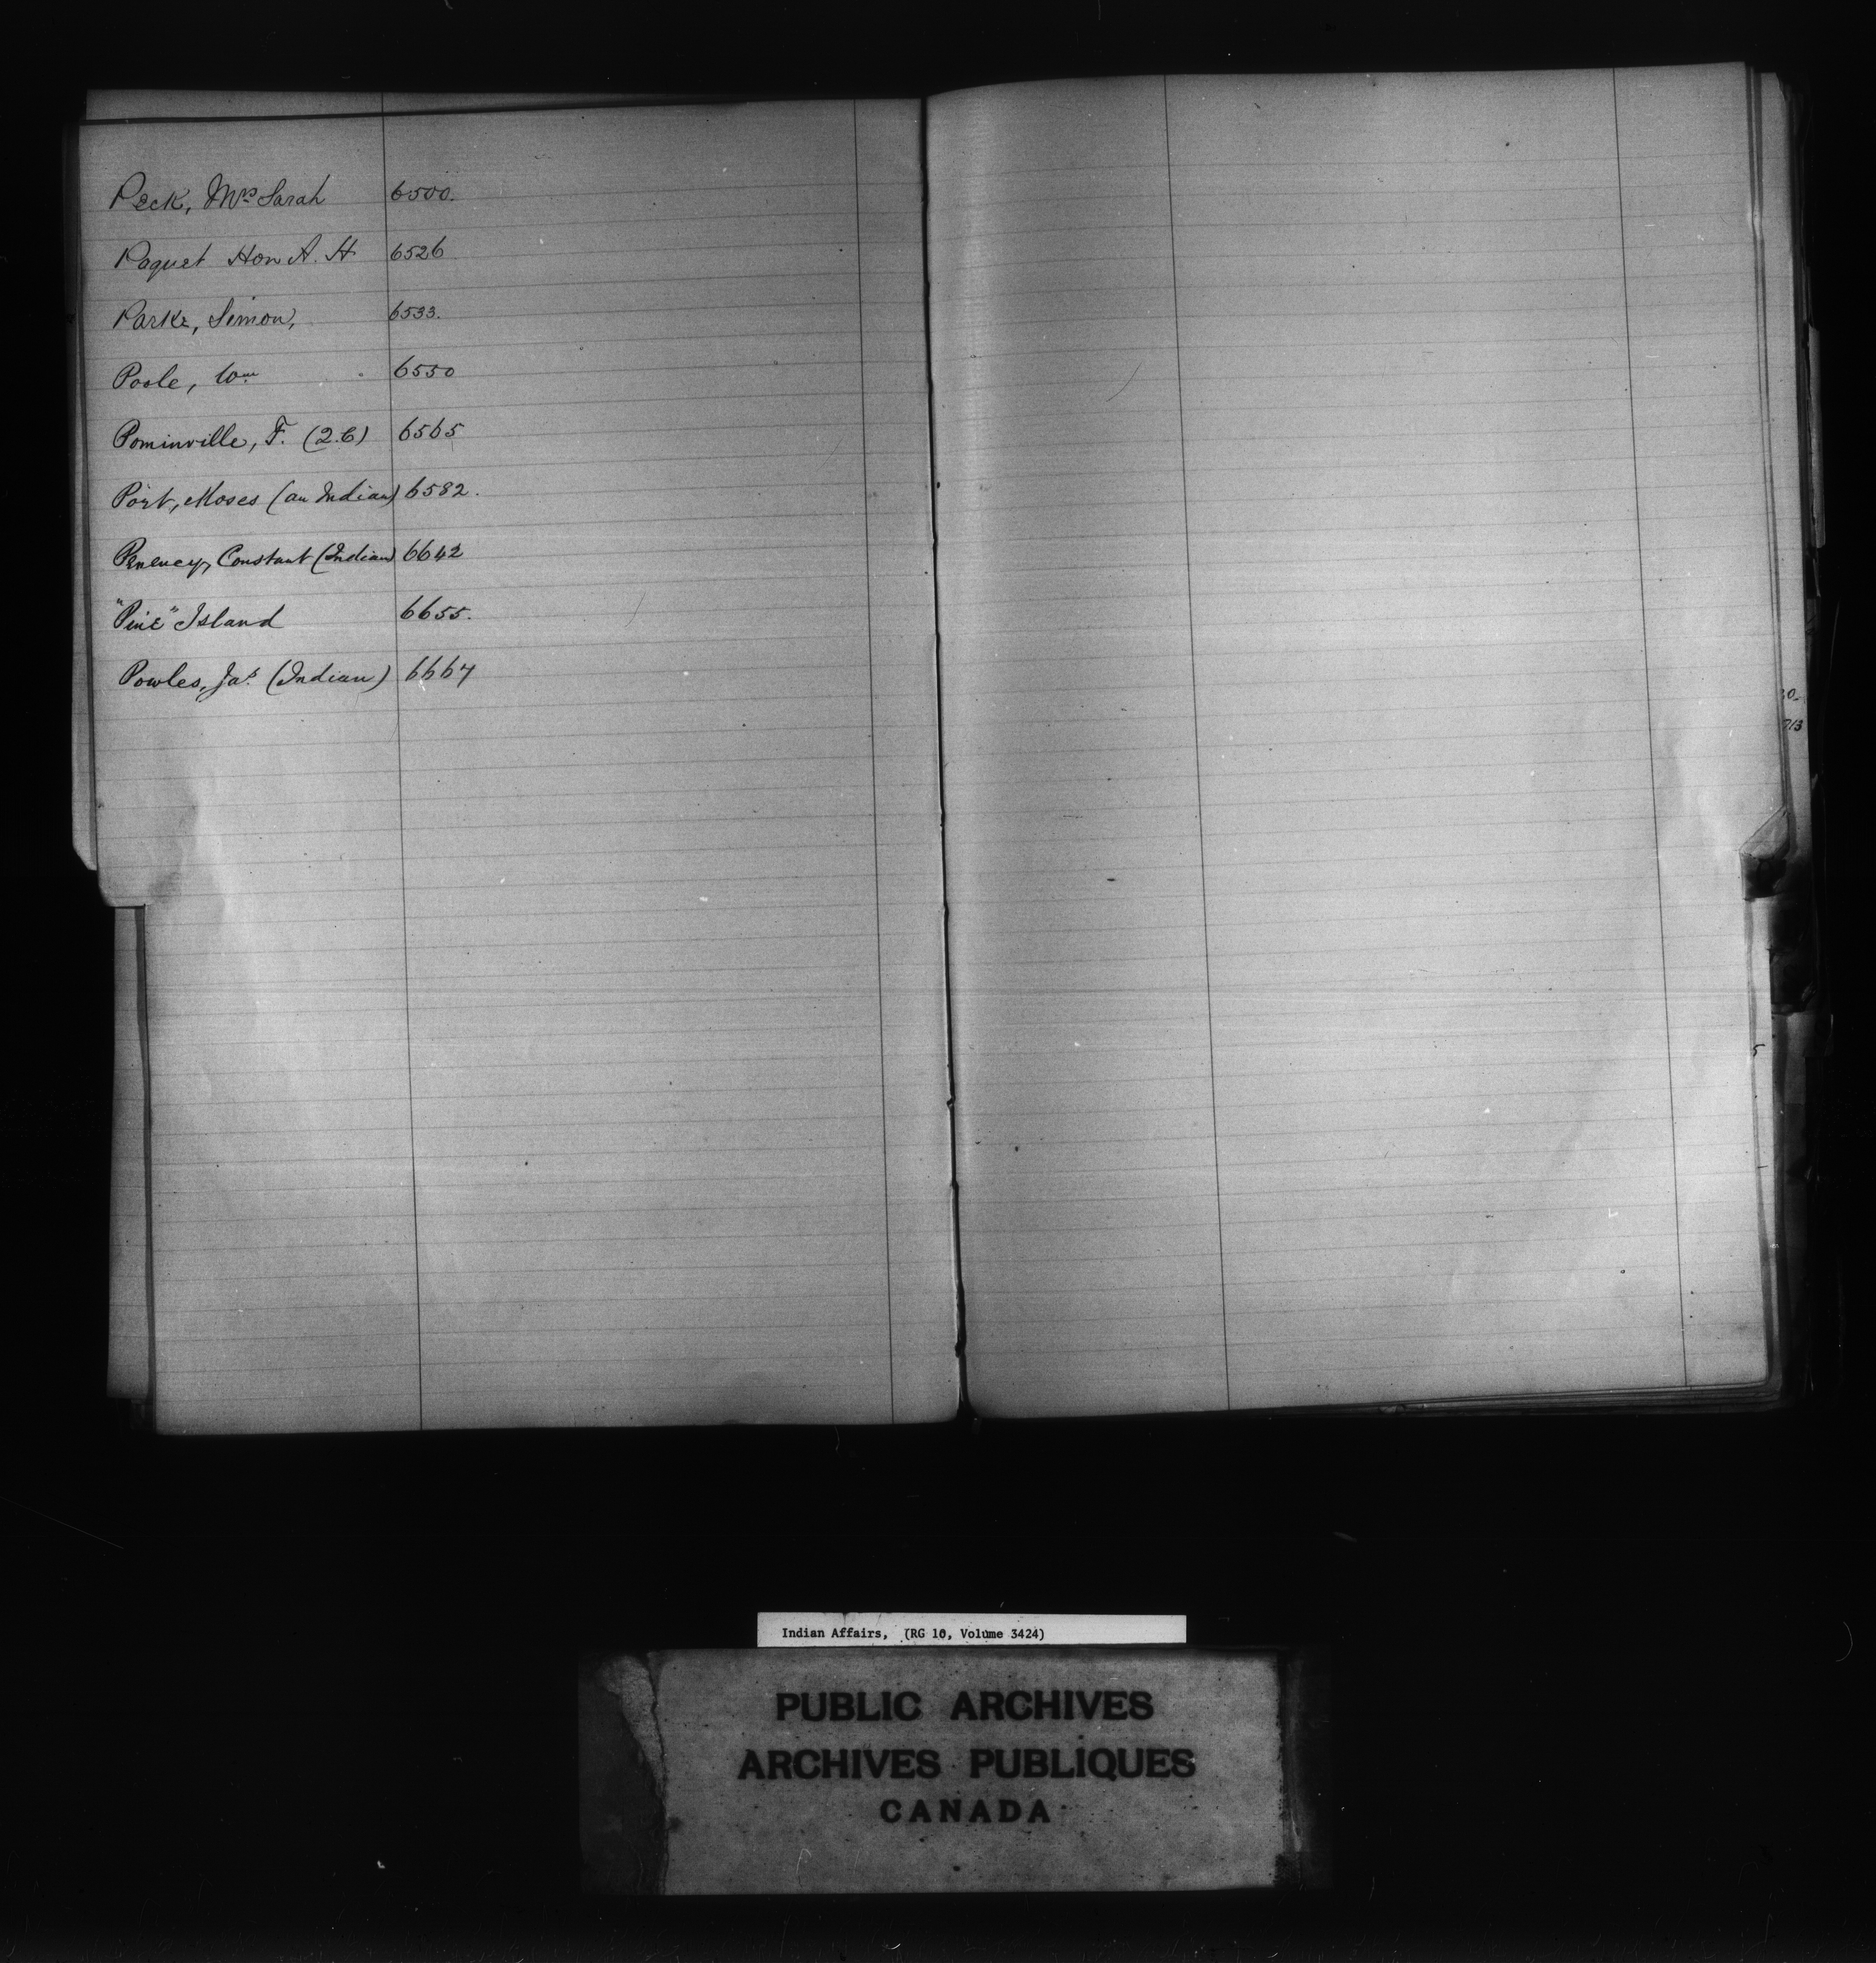 Peck, Mrs Sarah 6500.
Paquet Hon A. H 6526
Parke, Simon, 6533.
Poole, Wm 6550
Pominville, F. (2.C) 6565
Port, Moses (an Indian) 6582.
Penency, Constant (Indian) 6642
"Pine" Island 6655.
Powles, Jas. (Indian) 6667
Indian Affairs, (RG 10, Volume 3424)
PUBLIC ARCHIVES
ARCHIVES PUBLIQUES
CANADA